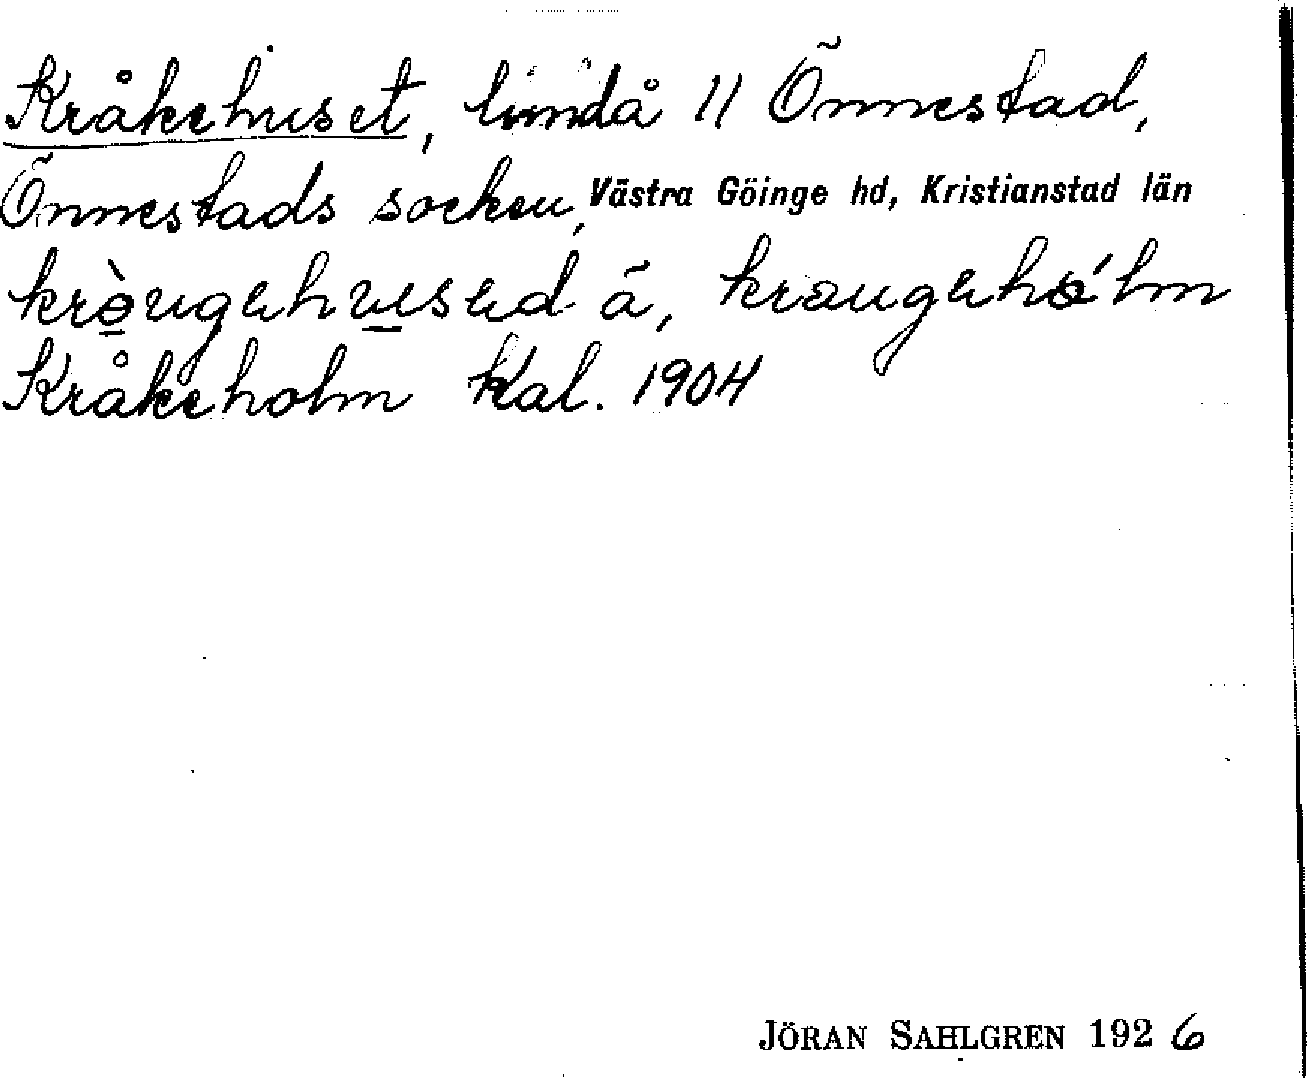 Kråkehuset, lmdå 11 Önnestad,
Önnestads socken, Västra Göinge hd, Kristianstad län
krògugehused å, kraugehólm
Kråkeholm Kal. 1904
JÖRAN SAHLGREN 1926